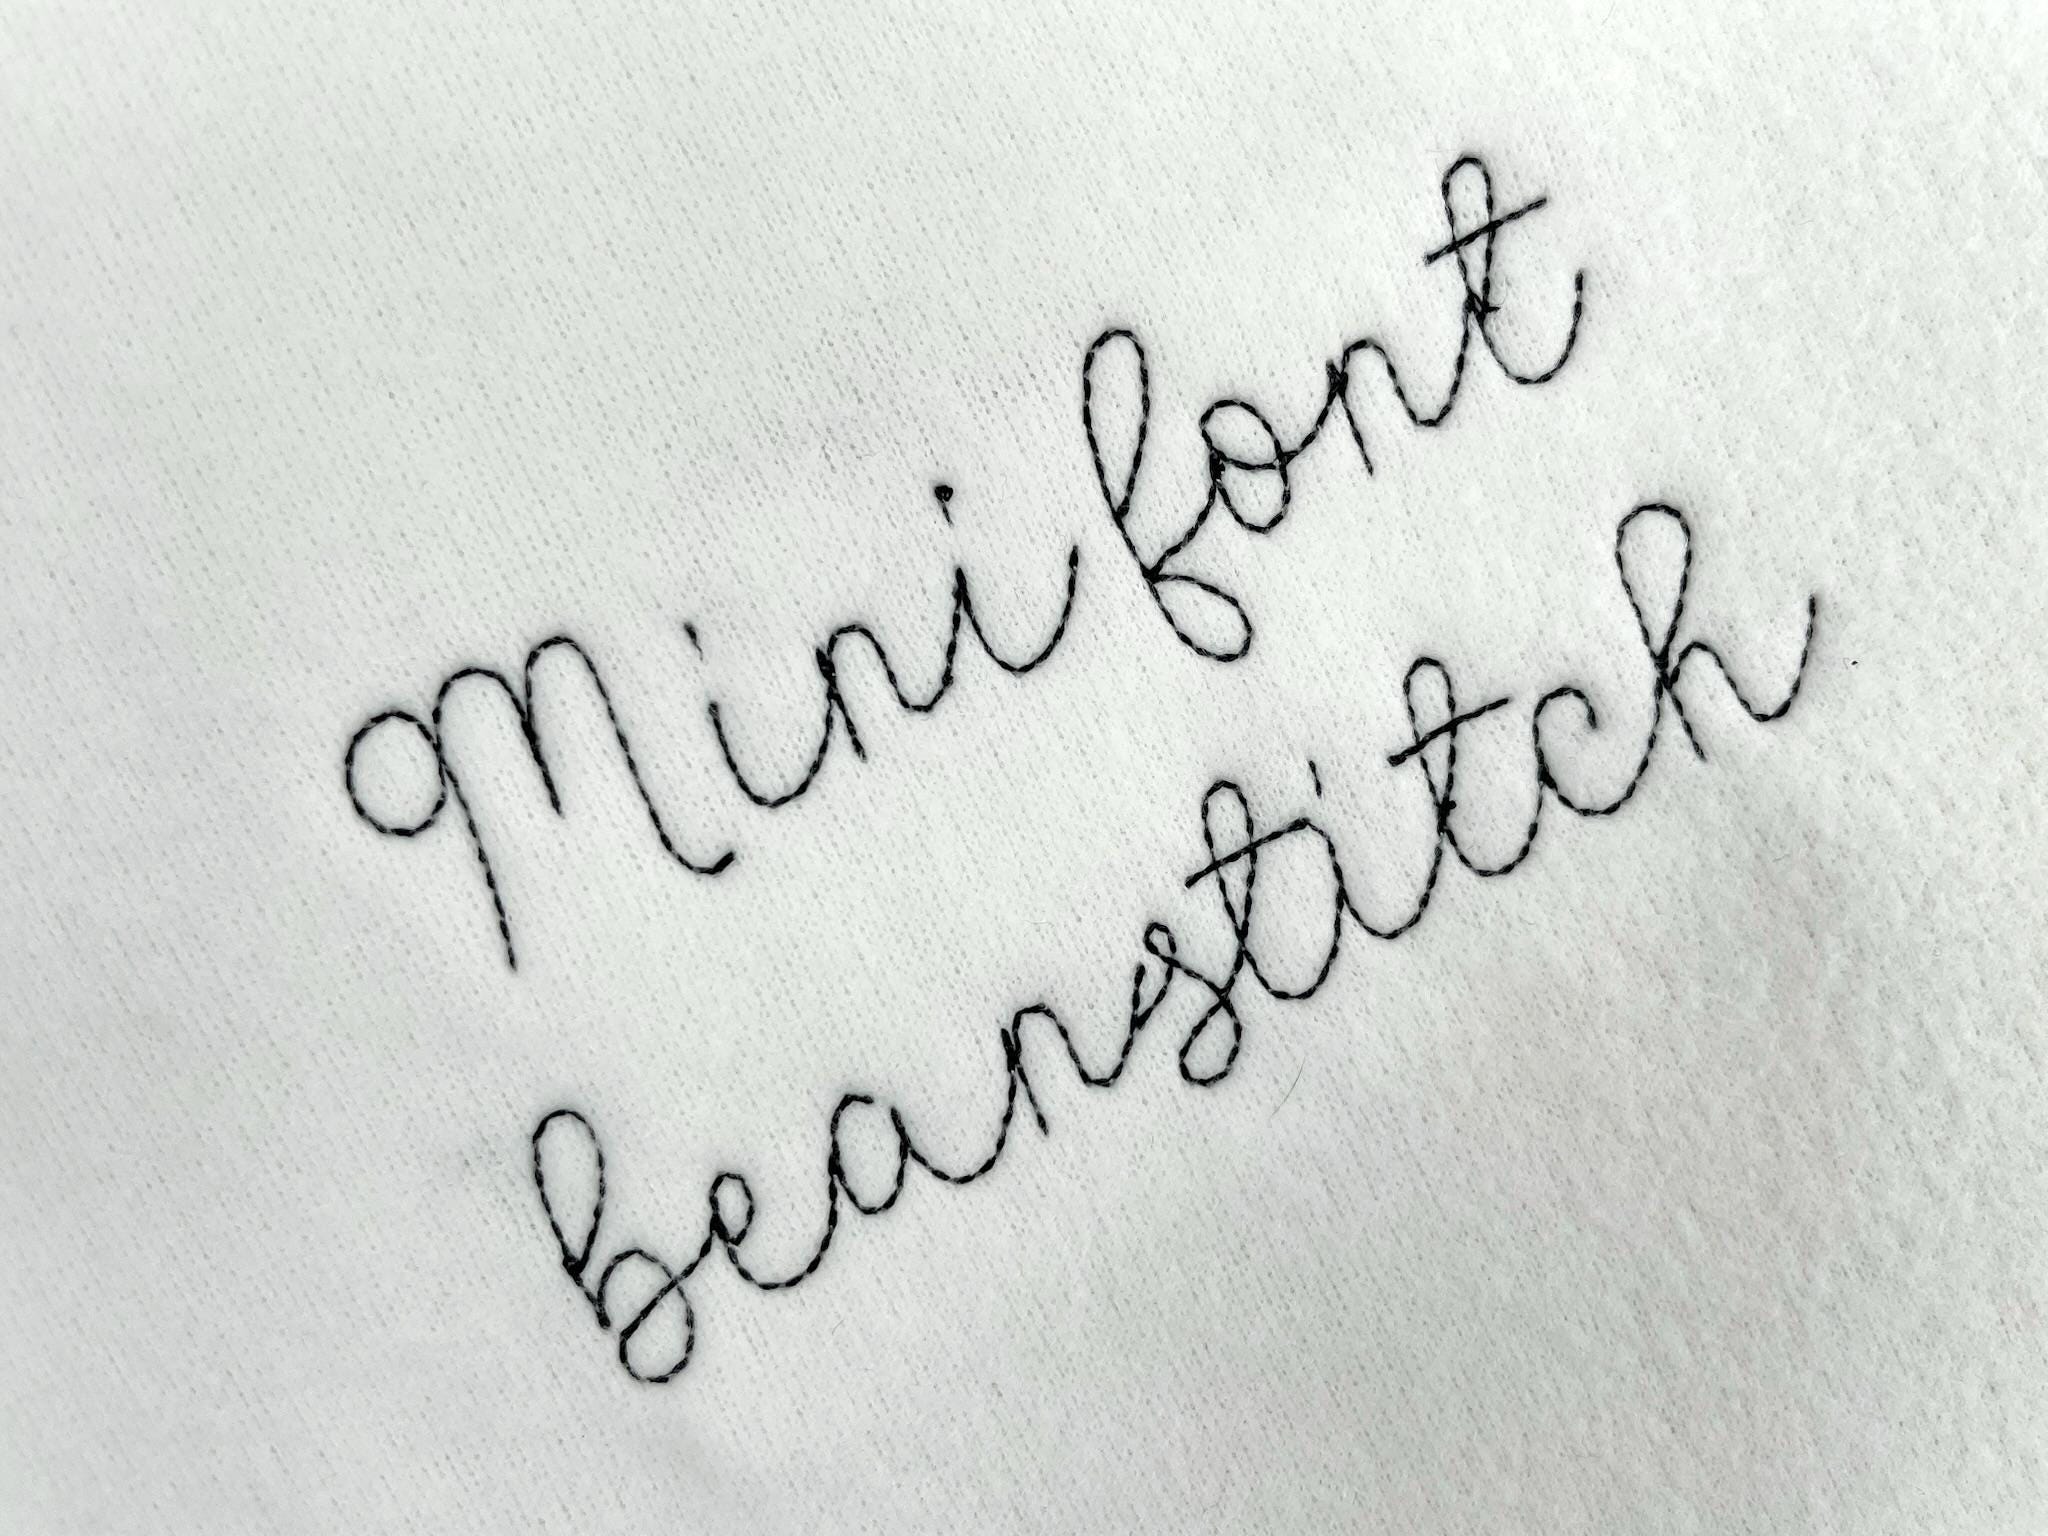 Mini font
beanstitch